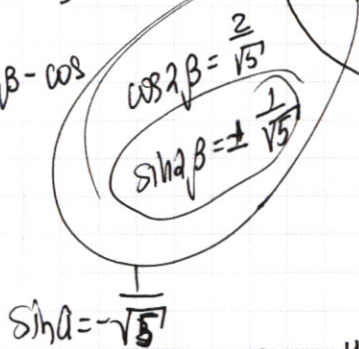 β - cos
cos2β = 2/√5
sin2β = ± 1/√5
sin a = -√5